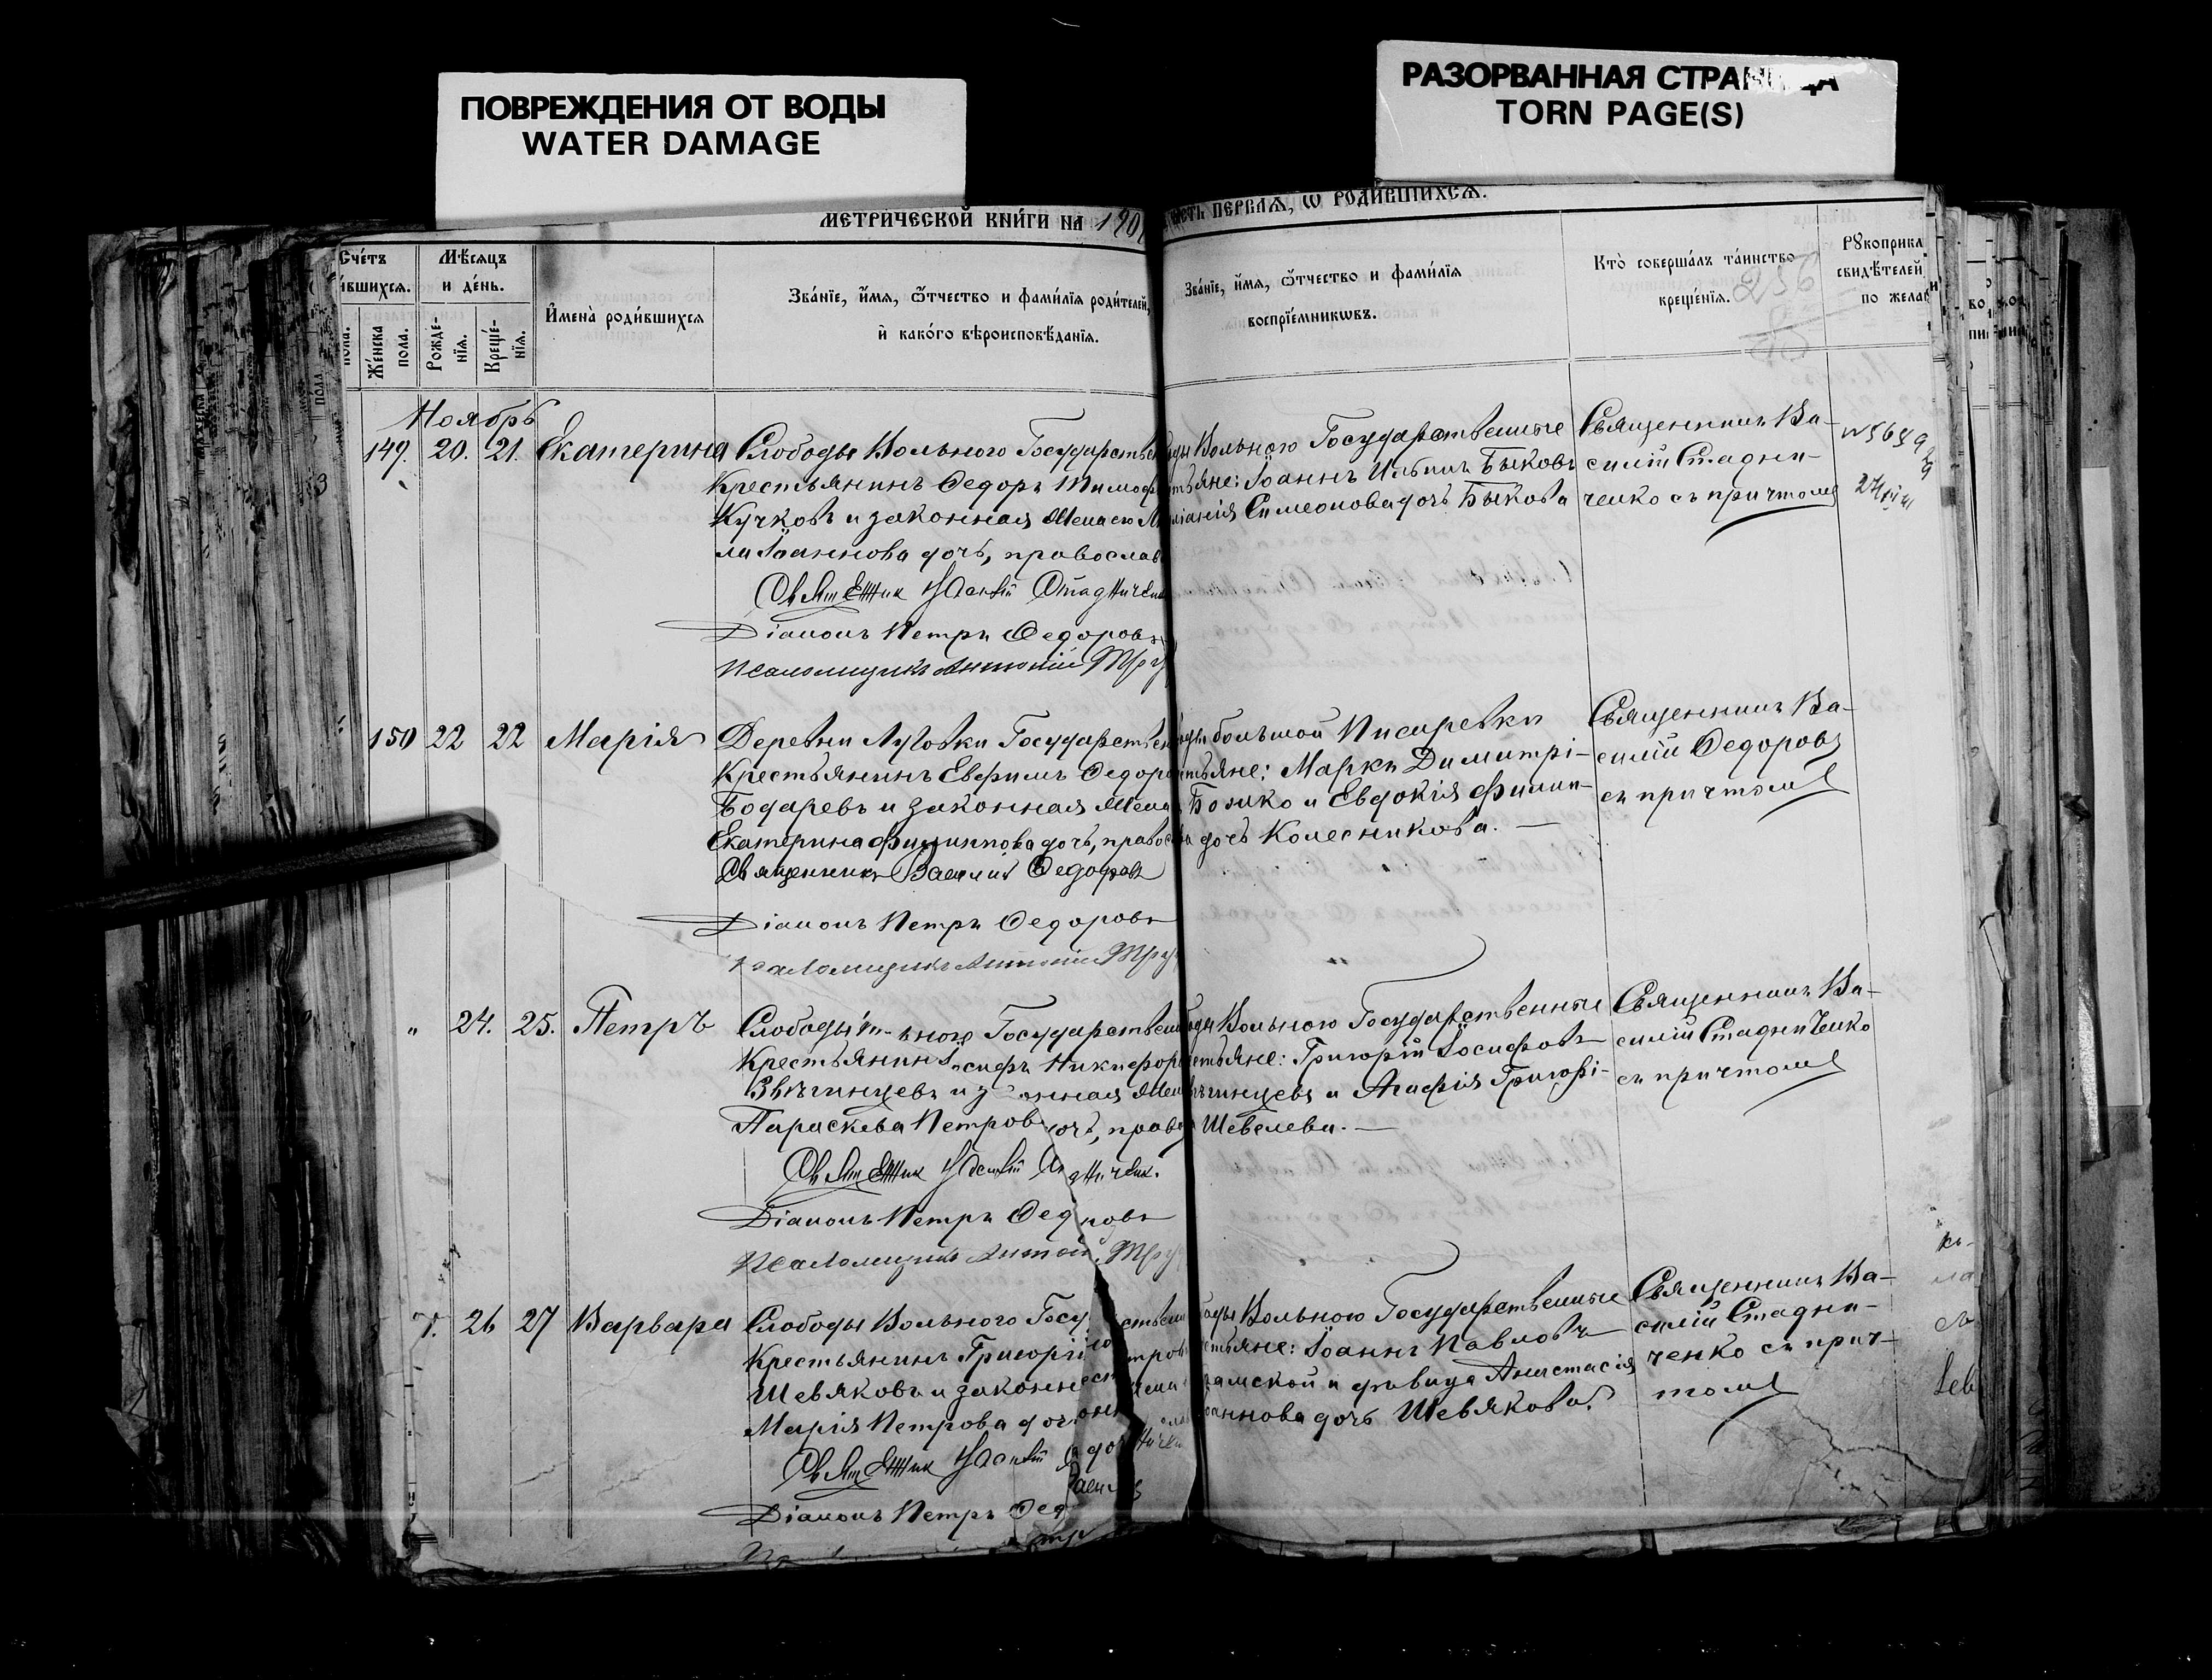 ПОВРЕЖДЕНИЯ ОТ ВОДЫ
WATER DAMAGE
РАЗОРВАННАЯ СТРАНИЦА
TORN PAGE(S)
МЕТРИ́ЧЕСКОЙ КНИ́ГИ НА 190
ПЕРВАѦ, Ѡ РОДИ́ВШИХСѦ.
Сче́тъ
и́вшихсѧ.
Же́нска пола.
Мѣ́сѧцъ
и де́нь.
Рожде-
нїѧ.
Креще́-
нїѧ.
И҆мена̀ роди́вшихсѧ
Зва́нїе, и҆́мѧ, ѻ҆́тчество и фами́лїѧ роди́телей,
и҆ како́гѡ вѣроисповѣ́данїѧ.
Зва́нїе, и҆́мѧ, ѻ҆́тчество и фами́лїѧ
воспрїе́мникѡвъ.
Кто̀ соверша́лъ та́инство
креще́нїѧ.
256
Рꙋкоприкла
свидѣ́телей
по жела
Ноябрь
149. 20. 21. Екатерина
Слободы Вольного Государствен
Крестьянинъ Ѳедоръ Тимоф
Кучковъ и законная жена его
Іоаннова дочь, православ
Священник Василій Стадниченк
Діаконъ Петръ Ѳедоровъ
Псаломщикъ Антоній Тру
Вольного Государственные
тьяне: Іоаннъ Ильинъ Быковъ
Симеонова дочь Быкова
Священникъ Ва-
силій Стадни-
ченко съ причтомъ
150 22 22 Марія
Деревни Луговки Государствен
Крестьянинъ Евфимъ Ѳедоро
Бодаревъ и законная жена
Екатерина Филиппова дочь, правос
Священникъ Василій Ѳедоровъ
Діаконъ Петръ Ѳедоровъ
Псаломщикъ Антоній Тру
большой Писаревки
тьяне: Марко Димитрі-
Божко и Евдокія Филип-
дочь Колесникова. —
Священникъ Ва-
силій Ѳедоровъ
съ причтомъ
" 24. 25. Петръ
Слободы ьного Государствен
Крестьянинъ Іосифъ Никифоро
Звягинцевъ и законная жен
Параскева Петрова дочь, право
Священник Василій Стадниченк.
Діаконъ Петръ Ѳедоровъ
Псаломщикъ Антоній Тру
Вольного Государственные
стьяне: Григорій Іосифовъ
гинцевъ и Агафія Григорі-
Шевелева. —
Священникъ Ва-
силій Стадниченко
съ причтомъ
26 27 Варвара
Слободы Вольного Госу рствен
Крестьянинъ Григорій
Шевяковъ и законн
Марія Петрова доч
Священник Василій
Діаконъ Петръ Ѳед
Вольного Государственные
стьяне: Іоаннъ Павловъ
и дѣвица Анастасія
аннова дочь Шевякова.
Священникъ Ва-
силій Стадни-
ченко съ прич-
томъ